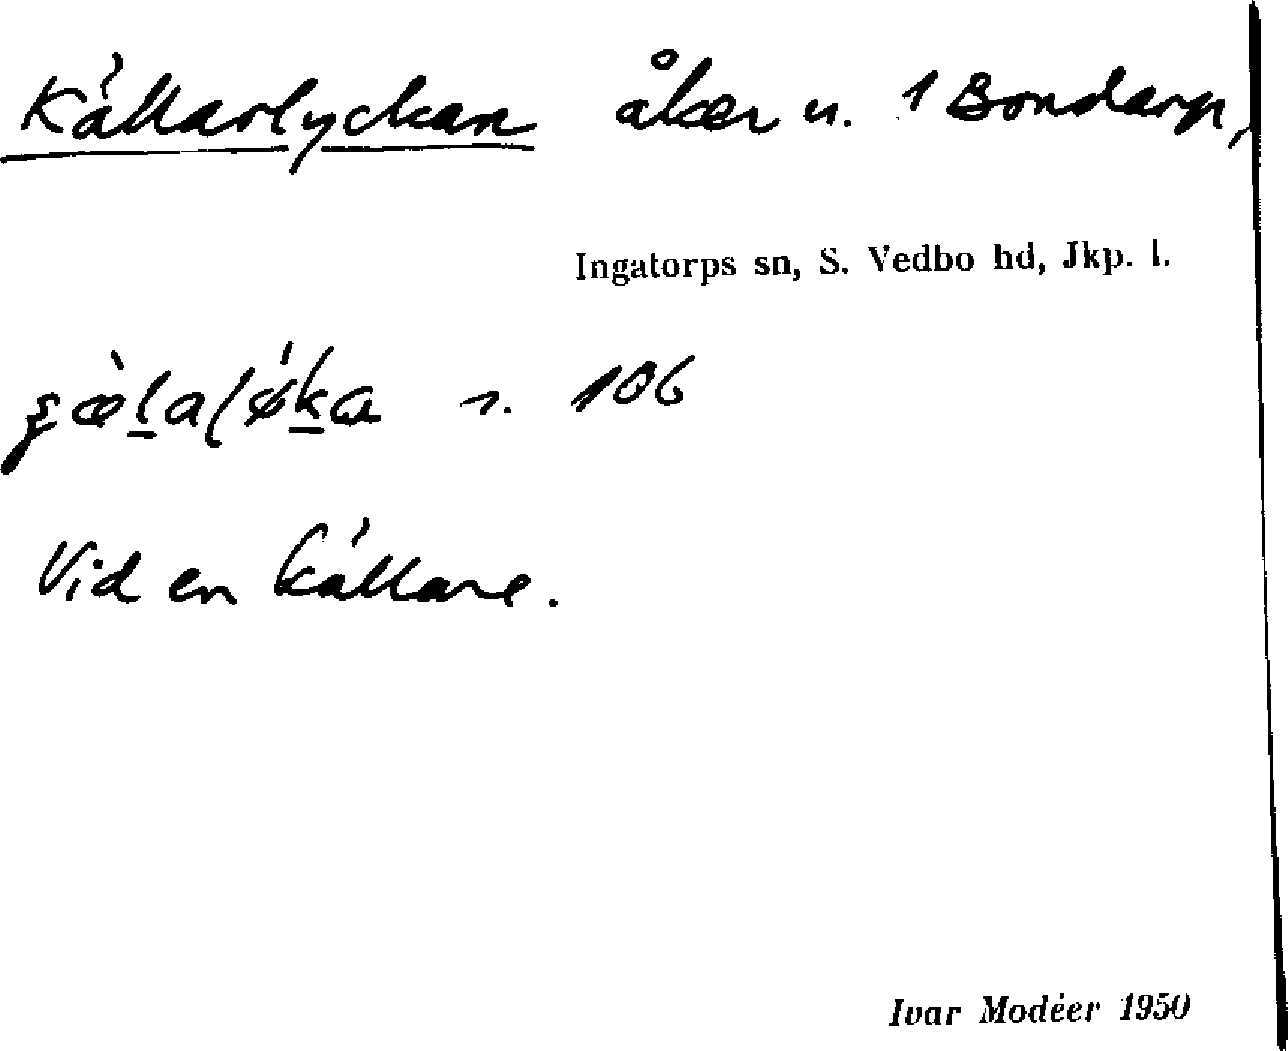 Källarlyckan åker u. 1 Bondarp,
Ingatorps sn, S. Vedbo hd, Jkp. l.
106
Vid en källare.
Ivar Modéer 1950